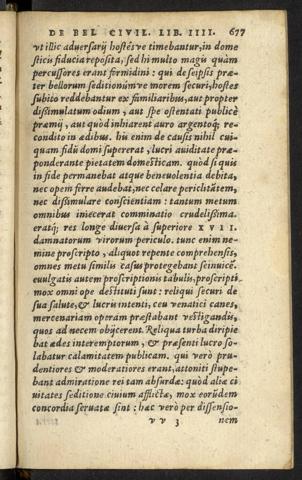 DE BEL CIVIL. LIB. IIII. 677
vt illic aduersarij hostes ve timebantur, in dome
sticis fiducia reposita, sed hi multo magis quàm
percussores erant formidini: qui de seipsis præ-
ter bellorum seditionum ve morem securi, hostes
subito reddebantur ex familiaribus, aut propter
dissimulatum odium, aut spe ostentati publicè
præmij, aut quòd inhiarent auro argentoq; re-
condito in ædibus. his enim de causis nihil cui-
quam fidū domi supererat, lucri auiditate præ-
ponderante pietatem domesticam. quòd si quis
in fide permanebat atque beneuolentia debita,
nec opem ferre audebat, nec celare periclitātem,
nec dissimulare conscientiam: tantum metum
omnibus iniecerat comminatio crudelissima.
eratq; res longe diuersa à superiore XVII.
damnatorum virorum periculo. tunc enim ne-
mine proscripto, aliquot repente comprehensis,
omnes metu similis casus protegebant seinuicē.
euulgatis autem proscriptionis tabulis, proscripti
mox omni ope destituti sunt: reliqui securi de
sua salute, & lucris intenti, ceu venatici canes,
mercenariam operam præstabant vestigandis,
quos ad necem obijcerent. Reliqua turba diripie
bat ædes interemptorum, & præsenti lucro so-
labatur calamitatem publicam. qui verò pru-
dentiores & moderatiores erant, attoniti stupe-
bant admiratione rei tam absurdæ: quòd aliæ ci
uitates seditione ciuium afflictæ, mox eorūdem
concordia seruatæ sint: hæc verò per dissensio-
vv 3 nem